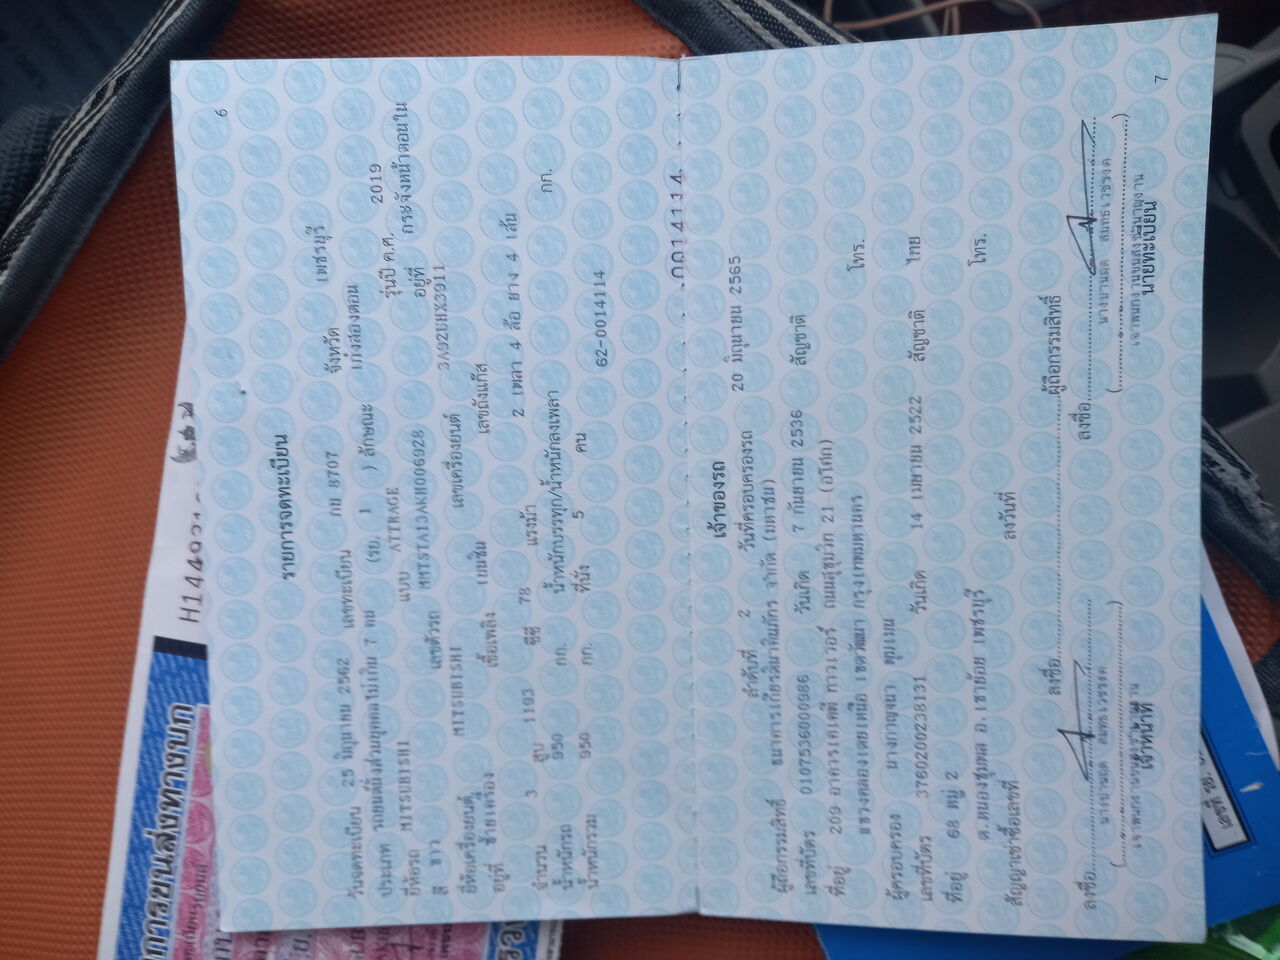 6
รายการจดทะเบียน
วันจดทะเบียน 25 มิถุนายน 2562 เลขทะเบียน กม 8707 จังหวัด เพชรบุรี
ประเภท รถยนต์นั่งส่วนบุคคลไม่เกิน 7 คน (รย. 1 ) ลักษณะ เก๋งสองตอน
ยี่ห้อรถ MITSUBISHI แบบ ATTRAGE รุ่นปี ค.ศ. 2019
สี ขาว เลขตัวรถ MMTSTA13AKH006928 อยู่ที่ กระจังหน้าตอนใน
ยี่ห้อเครื่องยนต์ MITSUBISHI เลขเครื่องยนต์ 3A92UHX3911
อยู่ที่ ซ้ายเครื่อง เชื้อเพลิง เบนซิน เลขถังแก๊ส
จำนวน 3 สูบ 1193 ซีซี 78 แรงม้า 2 เพลา 4 ล้อ ยาง 4 เส้น
น้ำหนักรถ 950 กก. น้ำหนักบรรทุก/น้ำหนักลงเพลา กก.
น้ำหนักรวม 950 กก. ที่นั่ง 5 คน
62-0014114
เจ้าของรถ
ลำดับที่ 2 วันที่ครอบครองรถ 20 มิถุนายน 2565
ผู้ถือกรรมสิทธิ์ ธนาคารเกียรตินาคินภัทร จำกัด (มหาชน)
เลขที่บัตร 0107536000986 วันเกิด 7 กันยายน 2536 สัญชาติ
ที่อยู่ 209 อาคารเคเคพี ทาวเวอร์ ถนนสุขุมวิท 21 (อโศก)
แขวงคลองเตยเหนือ เขตวัฒนา กรุงเทพมหานคร โทร.
ผู้ครอบครอง นางกาญจนา
เลขที่บัตร 3760200238131 วันเกิด 14 เมษายน 2522 สัญชาติ ไทย
ที่อยู่ 68 หมู่ 2
ต.หนองชุมพล อ.เขาย้อย เพชรบุรี โทร.
สัญญาเช่าซื้อเลขที่ ลงวันที่
ลงชื่อ ผู้ถือกรรมสิทธิ์
ลงชื่อ ลงชื่อ
เจ้าหน้าที่ นายทะเบียน
7
การขนส่งทางบก